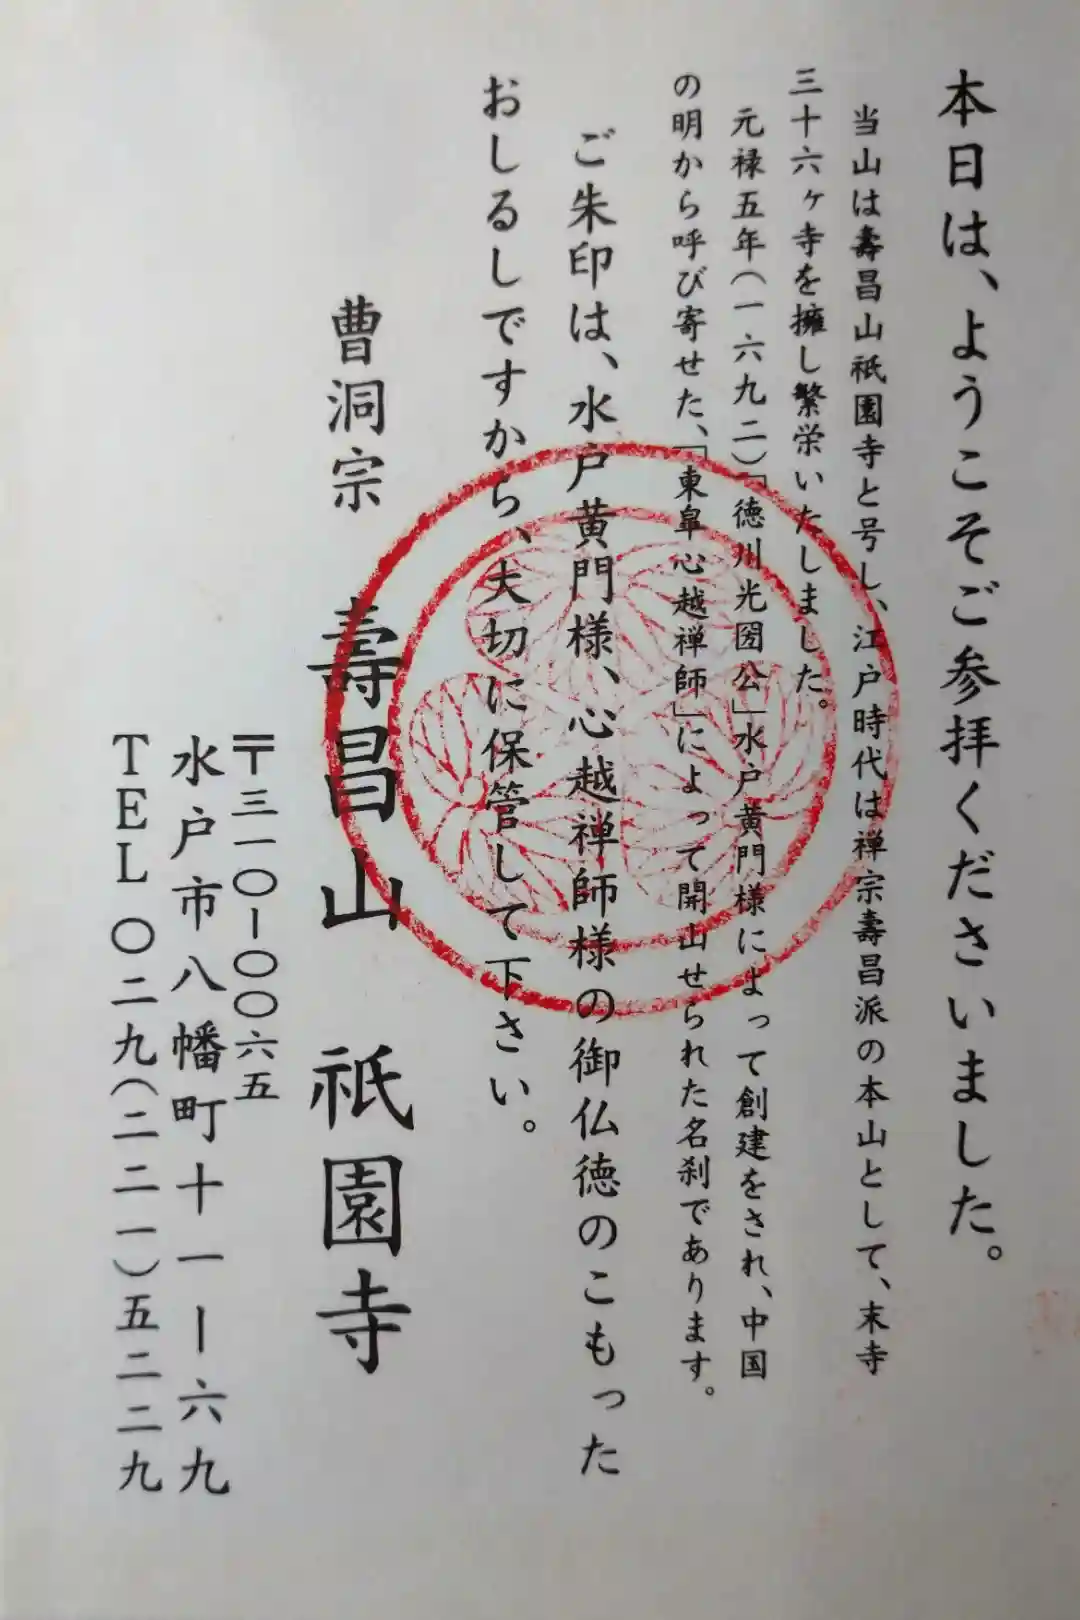 本日は、ようこそご参拝くださいました。
当山は壽昌山祇園寺と号し、江戸時代は禅宗壽昌派の本山として、末寺
三十六ヶ寺を擁し繁栄いたしました。
元禄五年(一六九二)「徳川光圀公」水戸黄門様によって創建をされ、中国
の明から呼び寄せた、「東皐心越禅師」によって開山せられた名刹であります。
ご朱印は、水戸黄門様、心越禅師様の御仏徳のこもった
おしるしですから、大切に保管して下さい。
曹洞宗 壽昌山 祇園寺
〒三一〇-〇〇六五
水戸市八幡町十一-六九
TEL〇二九(二二一)五二二九